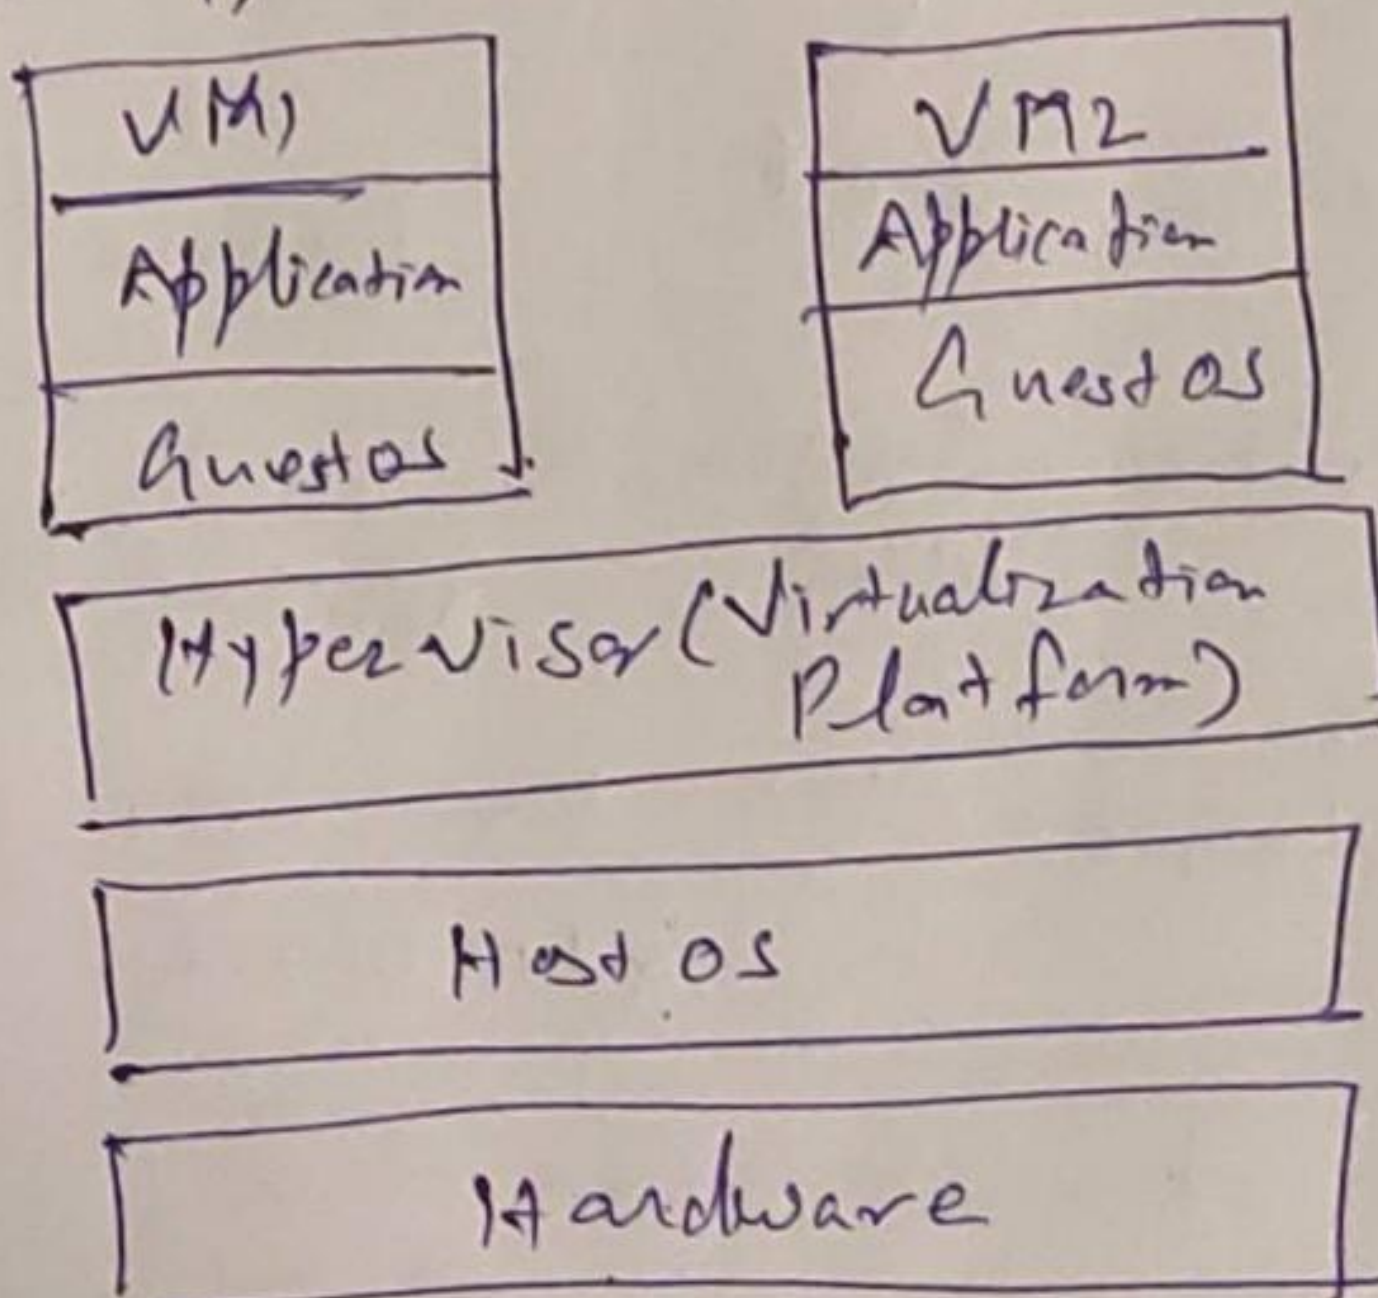 VM1
Application
Guest OS
VM2
Application
Guest OS
Hypervisor (Virtualization
Platform)
Host OS
Hardware